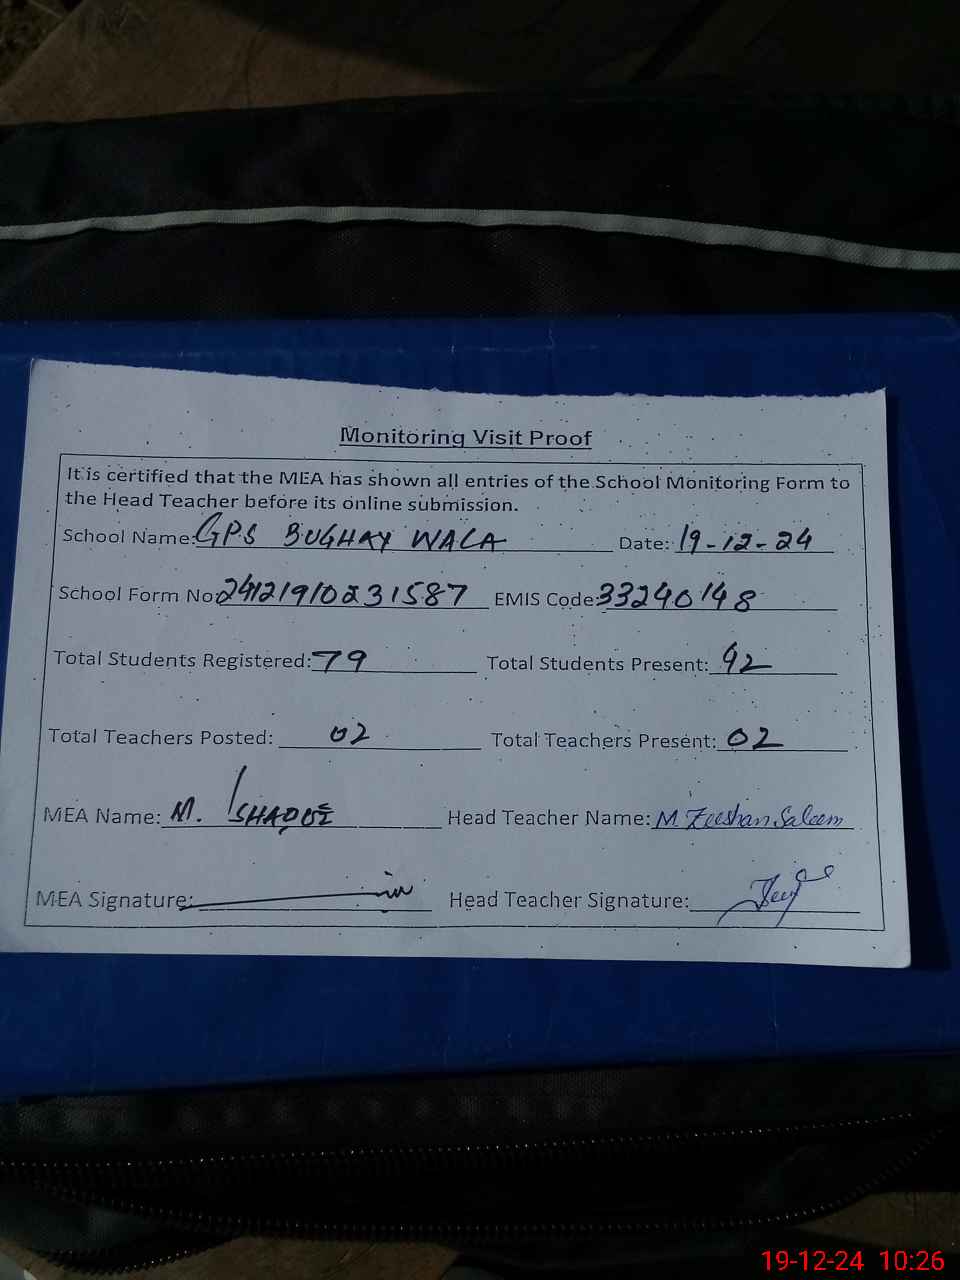 Monitoring Visit Proof
It is certified that the MEA has shown all entries of the School Monitoring Form to
the Head Teacher before its online submission.
School Name: GPS BUGHAY WALA Date: 19-12-24
School Form No: 24121910231587 EMIS Code: 33240148
Total Students Registered: 79 Total Students Present: 42
Total Teachers Posted: 02 Total Teachers Present: 02
MEA Name: M. Head Teacher Name: M Zeeshan Saleem
MEA Signature: Head Teacher Signature:
19-12-24 10:26